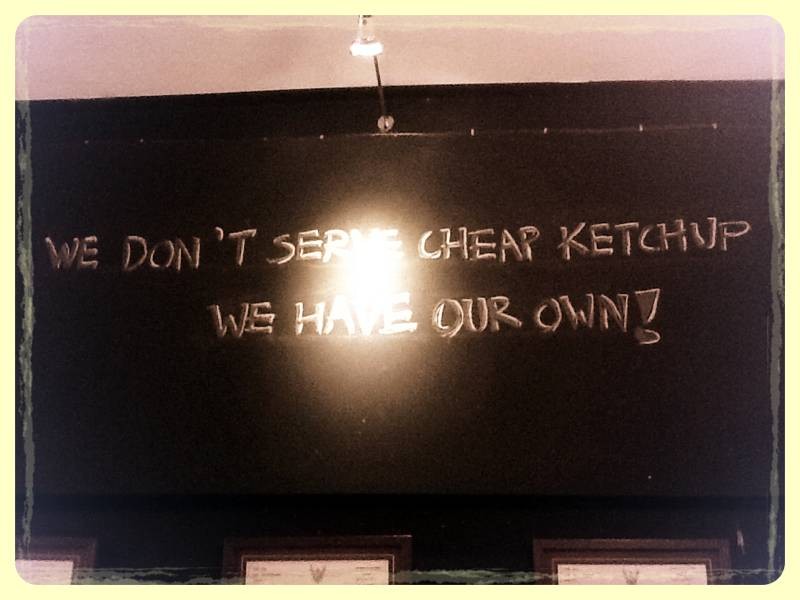 WE DON'T SERVE CHEAP KETCHUP
WE HAVE OUR OWN!